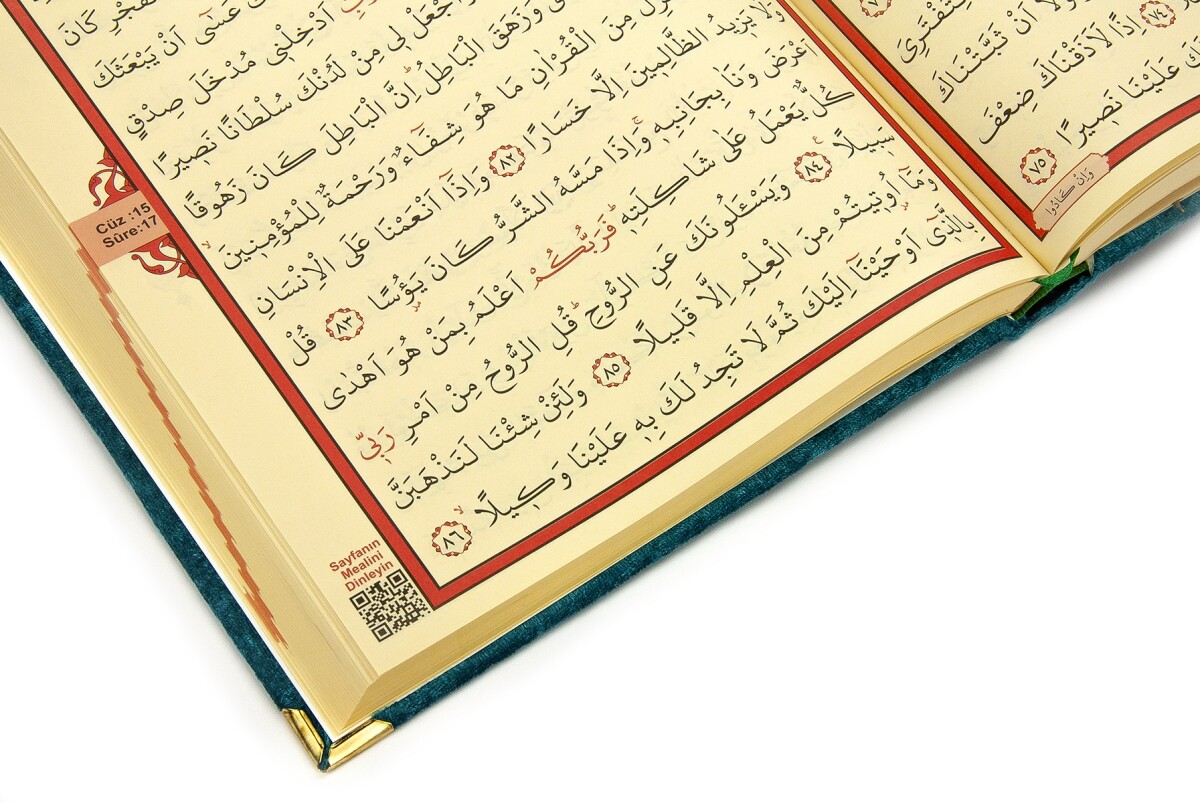 اَنْ ثَبَّتْنَاكَ
٧٤ اِذًا لَاَذَقْنَاكَ ضِعْفَ
عَلَيْنَا نَصِيرًا ٧٥
وَاِنْ كَادُوا
كَانَ
عَسٰٓى اَنْ يَبْعَثَكَ
اَدْخِلْنِى مُدْخَلَ صِدْقٍ
وَاجْعَلْ لِى مِنْ لَدُنْكَ سُلْطَانًا نَصِيرًا
وَزَهَقَ الْبَاطِلُ اِنَّ الْبَاطِلَ كَانَ زَهُوقًا
مِنَ الْقُرْاٰنِ مَا هُوَ شِفَٓاءٌ وَرَحْمَةٌ لِلْمُؤْمِنِينَ
وَلَا يَزِيدُ الظَّالِمِينَ اِلَّا خَسَارًا ٨٢ وَاِذَٓا اَنْعَمْنَا عَلَى الْاِنْسَانِ
اَعْرَضَ وَنَاٰ بِجَانِبِهِ وَاِذَا مَسَّهُ الشَّرُّ كَانَ يَؤُسًا ٨٣ قُلْ
كُلٌّ يَعْمَلُ عَلٰى شَاكِلَتِهِ فَرَبُّكُمْ اَعْلَمُ بِمَنْ هُوَ اَهْدٰى
سَبِيلًا ٨٤ وَيَسْـَٔلُونَكَ عَنِ الرُّوحِ قُلِ الرُّوحُ مِنْ اَمْرِ رَبِّى
وَمَٓا اُوتِيتُمْ مِنَ الْعِلْمِ اِلَّا قَلِيلًا ٨٥ وَلَئِنْ شِئْنَا لَنَذْهَبَنَّ
بِالَّذِٓى اَوْحَيْنَٓا اِلَيْكَ ثُمَّ لَا تَجِدُ لَكَ بِهِ عَلَيْنَا وَكِيلًا ٨٦
Cüz :15
Sûre:17
Sayfanın
Mealini
Dinleyin